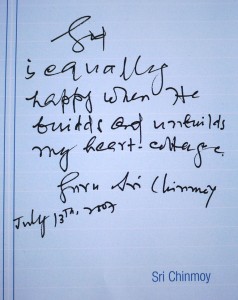 God
is equally
happy when He
builds and unbuilds
my heart-cottage.
Sri Chinmoy
July 13TH,
Sri Chinmoy